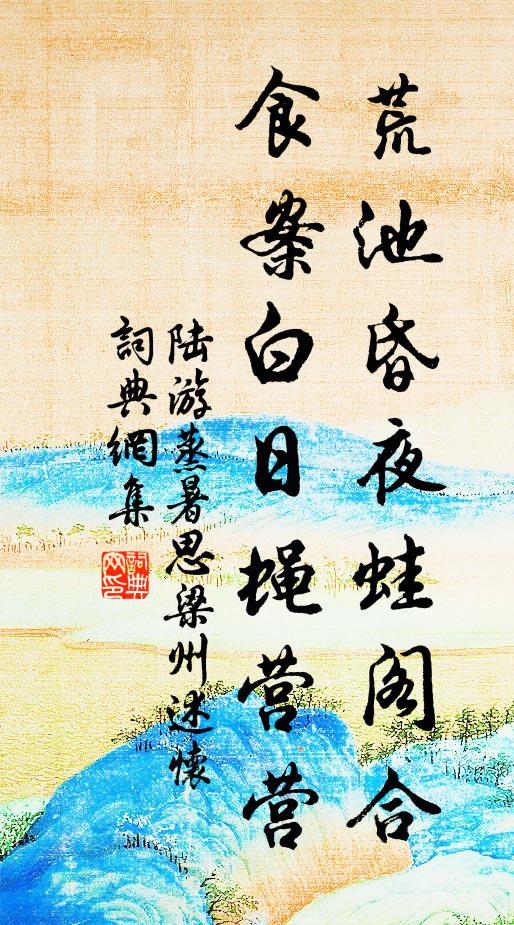 荒池昏夜蛙阁合
食案白日蝇营营
陆游蒸暑思梁州述懷
詞典網集
詞典